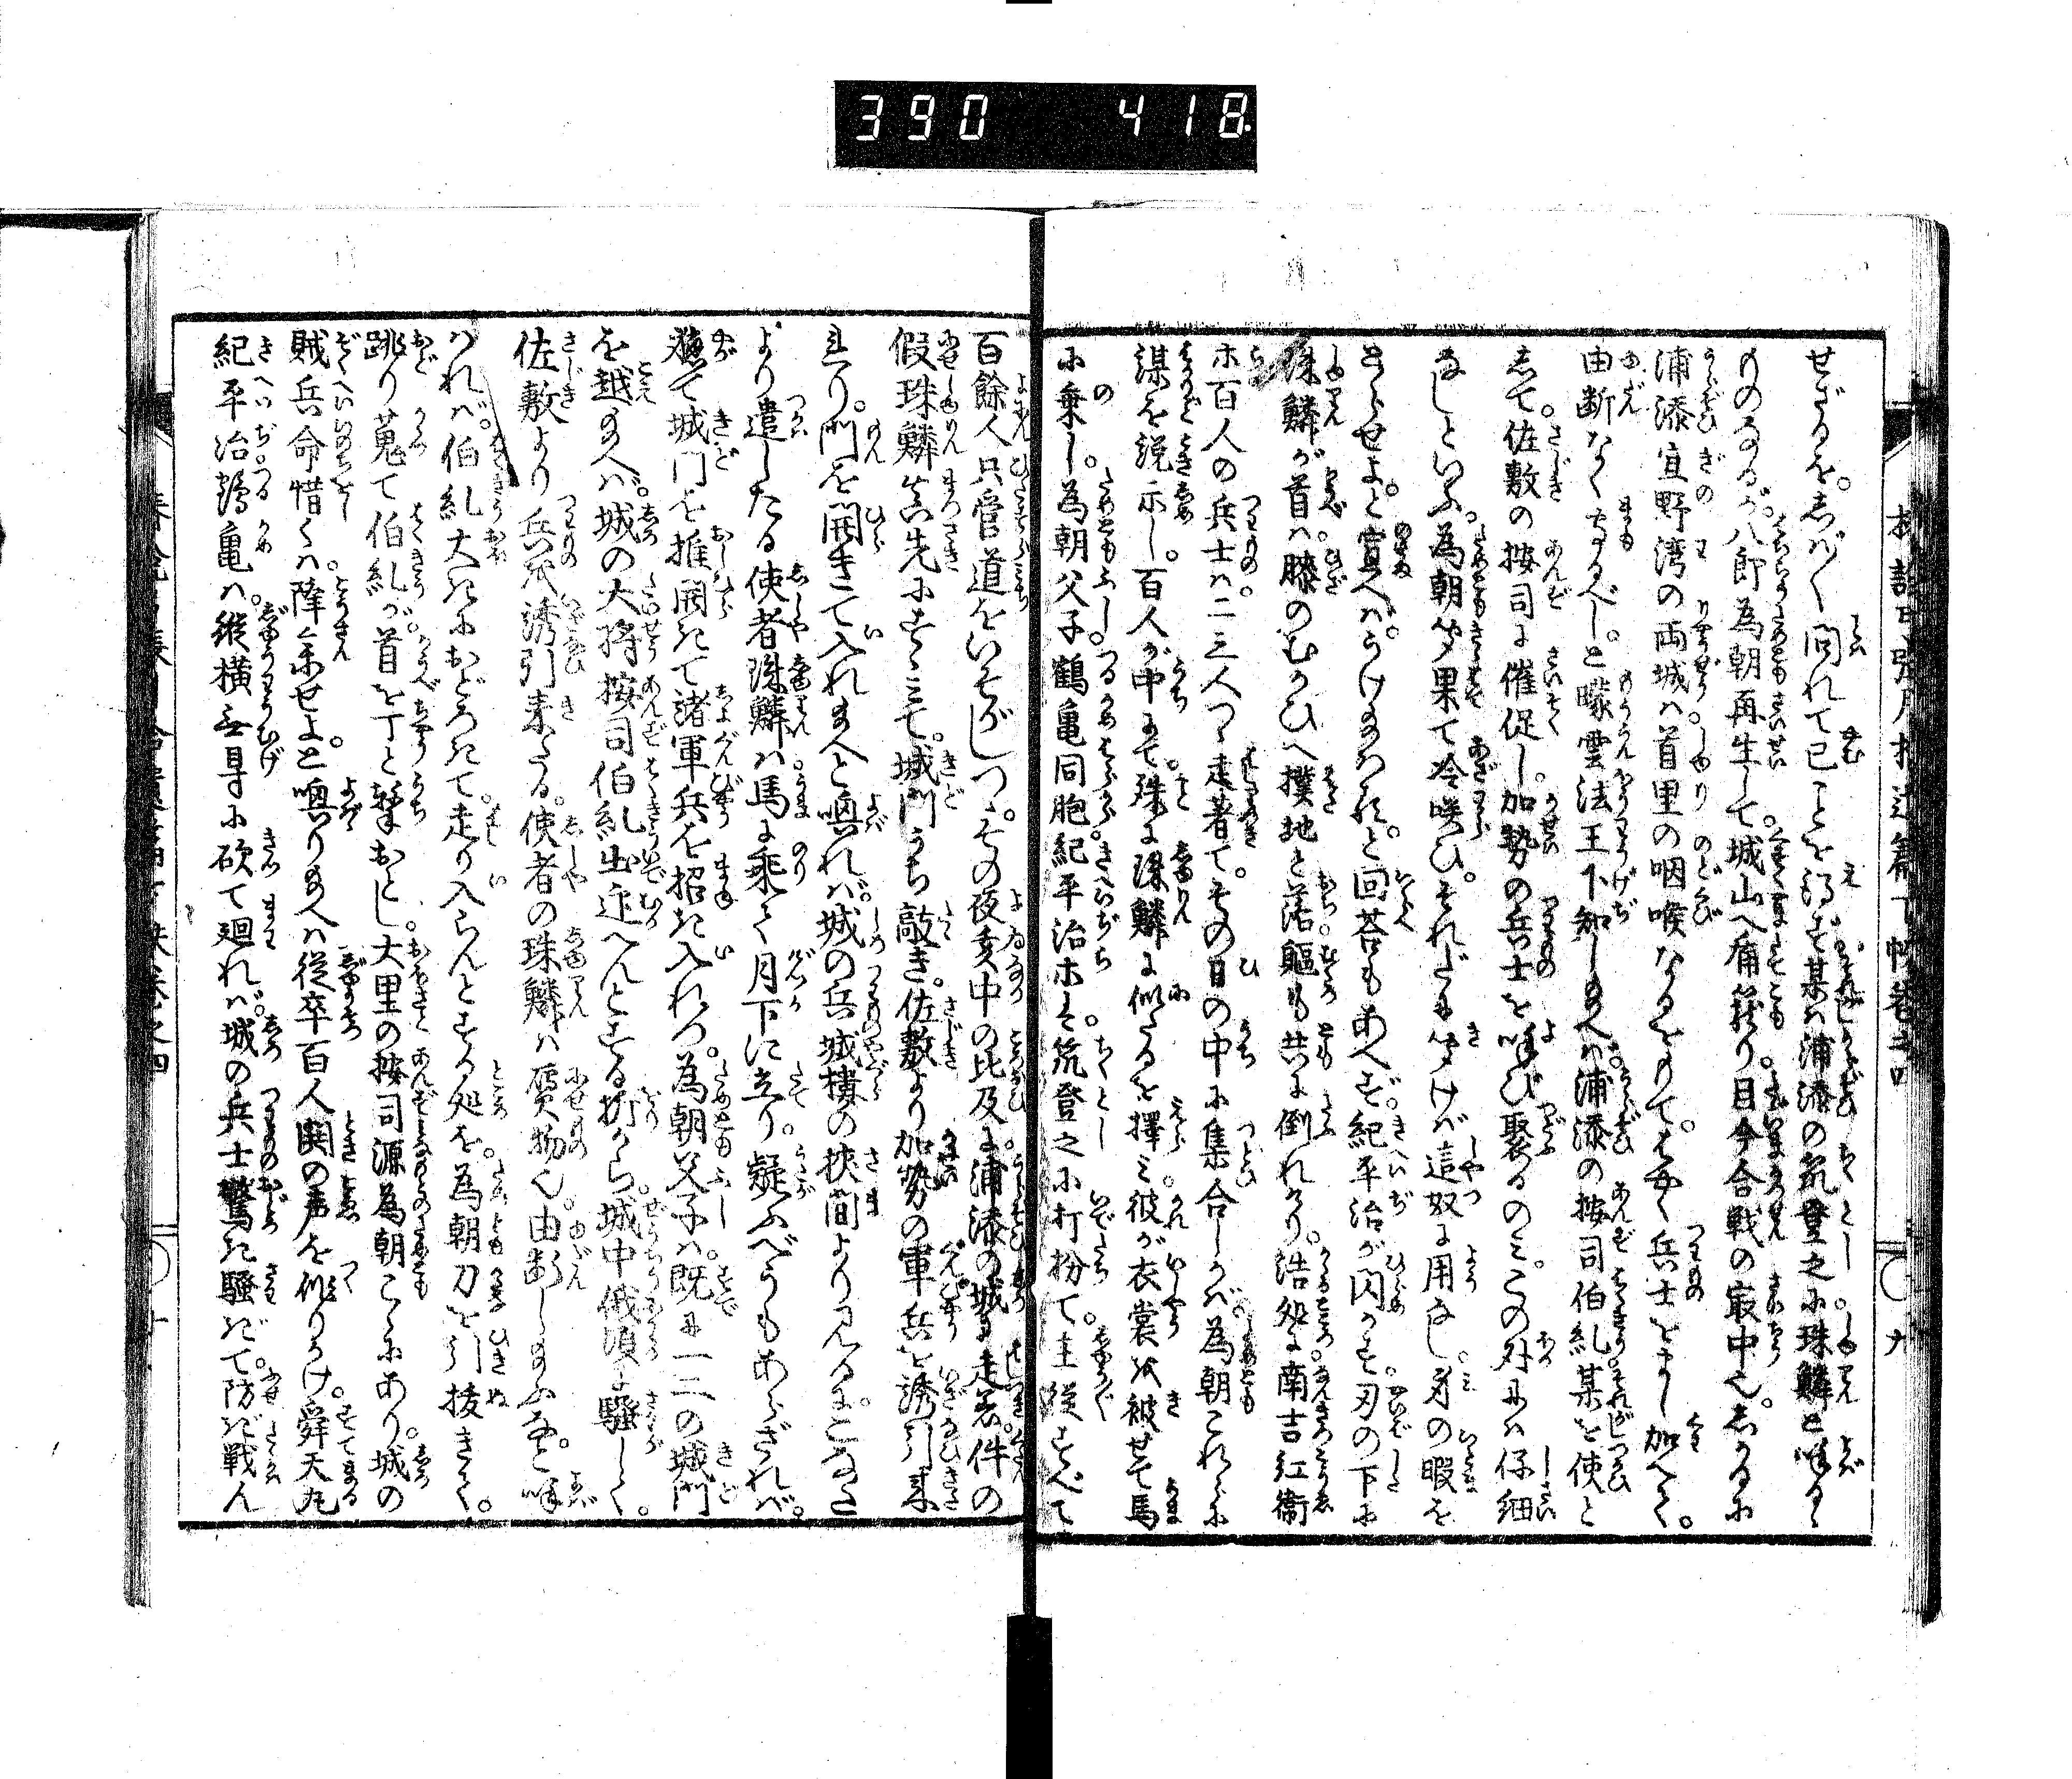 390 418
せざるを。しば〳〵問れて已ことを得ず某は浦添の筑登之に珠鱗と喚るゝ
ものなるが。八郎為朝再生して。城山へ痛籠り。目今合戦の最中也。しかるに
浦添宜野湾の両城は。首里の咽喉なるをもて。よく兵士をまし加へて。
由断なく守るべし。と曚雲法王下知し給へは。浦添の按司伯糺某を使と
して。佐敷の按司に催促し。加勢の兵士を喚び聚るのみ。この外には仔細
なしといふ。為朝聞果て冷咲ひ。それだに聞けば這奴に用なし。身の暇を
とらせよ。と宣へば。うけ給はりぬ。と回荅もあへず。紀平治が閃かす。刃の下に
珠鱗が首は。膝のむかひへ撲地と落。軀も共に倒れけり。浩処に南吉紅衛
ホ百人の兵士は。二三人づゝ走著て。その日の中に集合しかば。為朝これらに
謀を説示し。百人が中にて。殊に珠鱗に似たるを擇み。彼が衣裳を被せて馬
に乗し。為朝父子。鶴亀同胞。紀平治ホを。筑登之に打扮て。主従すべて
百餘人只管道をいそがしつゝ。その夜亥中の比及に。浦添の城に走著。件の
假珠鱗真先にすゝみて。城門うち敲き。佐敷より加勢の軍兵を誘引来
れり。門を開きて入れ給へと喚れば。城の兵城樓の挟間より見るに。こなた
より遣したる使者珠鱗は。馬に乗て月下に立り。疑ふべうもあらざれば。
軈て城門を推開きて諸軍兵を招き入れつ。為朝父子は。既に一二の城門
を越給へば。城の大将按司伯糺出迎へんとする折から。城中俄頃に騒しく。
佐敷より兵を誘引来たる。使者の珠鱗は贋物也。由断し給ふな。と喚
はれば。伯糺大きにおどろきて。走り入らんとする処を。為朝刀を引抜きて。
跳り蒐て伯糺が。首を丁と撃おとし。大里の按司源為朝こゝにあり。城の
賊兵命惜くは。降参せよ。と喚り給へは。従卒百人鬨の声を作りかけ。舜天丸
紀平治鶴亀は。縦横無㝵に砍て廻れば。城の兵士驚き騒ぎて。防ぎ戦ん